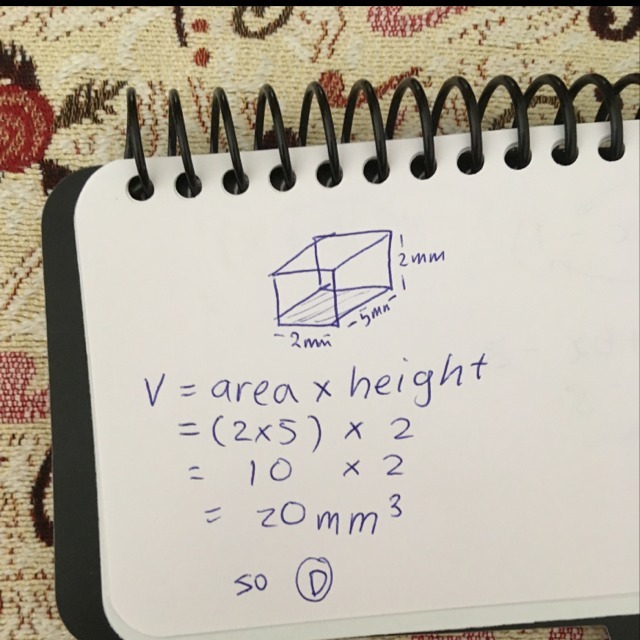 2mm
5mm
2mm
V = area x height
= (2x5) x 2
= 10 x 2
= 20mm³
so D